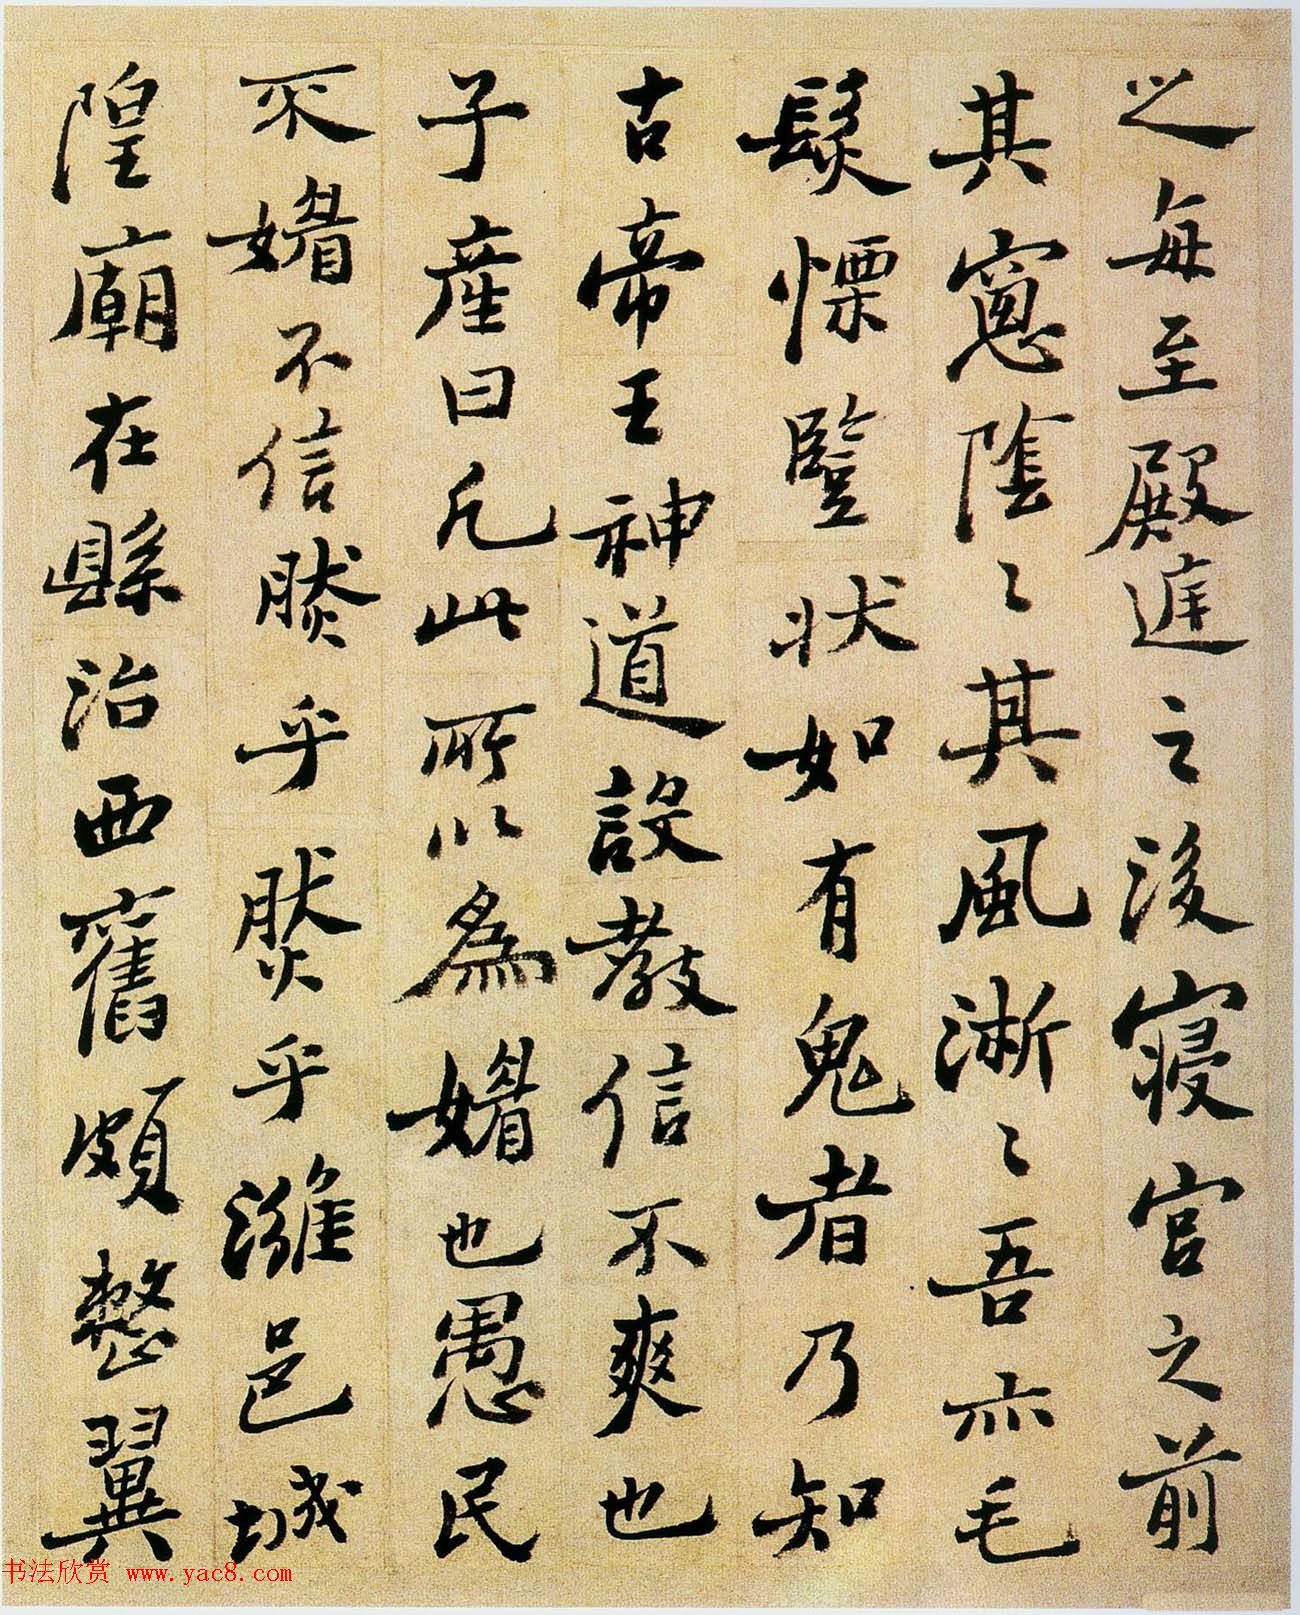 之每至殿庭之後寢宮之前
其窻陰〻其風淅〻吾亦毛
髮慄豎状如有鬼者乃知
古帝王神道設教信不爽也
子產曰凡此所以為媚也愚民
不媚不信然乎然乎濰邑城
隍廟在縣治西舊頗整翼
书法欣赏 www.yac8.com